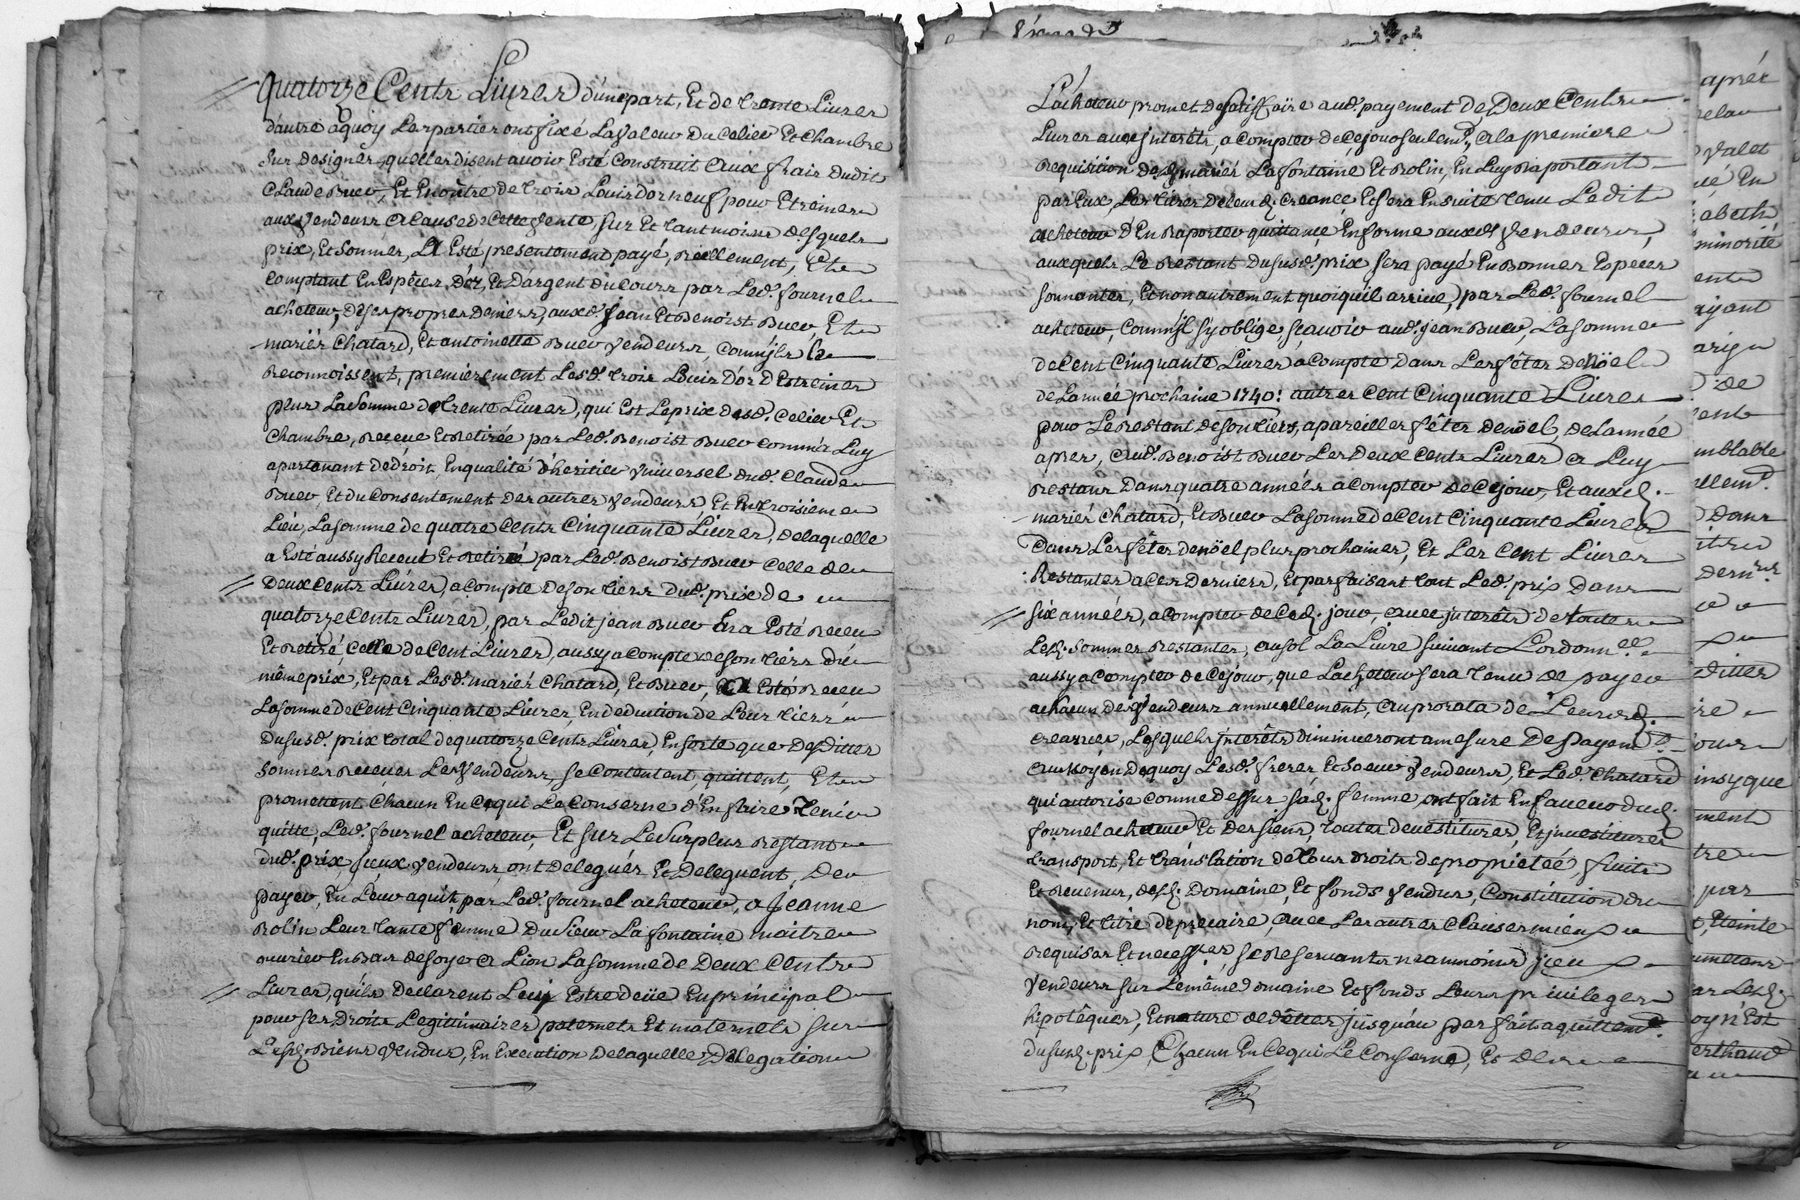 Quatorze Cents Livres d'une part, Et de trente Livres
d'autre a quoy Les parties ont fixé La valeur du Celier Et Chambre
Sur designés, quelles disent avoir Esté Construit Aux frais dudit
Claude Buer, Et Encontre de trois Louis d'or neuf pour Etreines
aux vendeurs A Cause de Cette vente, Sur Et tant moins desquels
prix, Et Sommes, Il a Esté presentement payé, réellement, Et
Comptant En Espêces d'or, Et d'argent du Cours par Led. fournel
acheteur, de ses propres deniers, auxd. Jean Et Benoist Buer, Et
mariés Chatard, Et antoinette Buer vendeurs, Comm'ils le
Reconnoissent, premierement Lesd. trois Louis d'or d'Estreines
plus La Somme de trente Livres, qui Est Le prix desd. Celier Et
Chambre, Receue Et Retirée par Led. Benoist Buer Comme a Luy
apartenant de droit, En qualité d'heritier Universel dud. Claude
Buer, Et du Consentement des autres vendeurs, Et En troisieme
Lieu, La Somme de quatre Cents Cinquante Livres, de laquelle
a Esté aussy Receut Et Retiré par Led. Benoist Buer Celle de
Deux Cents Livres, a Compte de Son tiers dud. prix de
quatorze Cents Livres, par Ledit Jean Buer En a Esté Receu
Et Retiré, Celle de Cent Livres, aussy a Compte de Son tiers du
même prix, Et par Lesd. mariés Chatard, Et Buer, Esté Receu
La Somme de Cent Cinquante Livres, En deduction de Leur tiers
du susd. prix total de quatorze Cents Livres, En Sorte que desdittes
Sommes receues Les vendeurs, se Contentent, quittent, Et
promettent, Chacun En Ce qui Le Conserne d'En faire tenir
quitte, Led. fournel acheteur, Et Sur Le Surplus Restant
dud. prix, iceux vendeurs, ont delegués Et Deleguent, De
payer, En Leur aquit, par Led. fournel acheteur, a Jeanne
Rolin Leur tante femme du Sieur La fontaine maitre
ouvrier En Bas de Soye A Lion La Somme de Deux Cents
Livres, qu'ils Declarent Luy Estre deüe En principal
pour Ses Droits Legitimaires paternels Et maternels Sur
Lesd. Biens vendus, En Execution de laquelle Delegation
L'acheteur promet de Satisfaire aud. payement de Deux Cents
Livres avec interêts, a Compter de Ce jour Seulemt. A la premiere
Requisition desd. mariés La fontaine Et Rolin, En Luy Raportant
par Eux, Les titres de Leurd. Creance Et Sera Ensuite tenu Ledit
acheteur d'En Raporter quittance En forme auxd. vendeurs,
auxquels Le Restant du susd. prix sera payé En Bonnes Especes
Sonnantes, Et non autrement quoiqu'il arrive, par Led. fournel
acheteur, Comm'il S'y oblige, Scavoir aud. Jean Buer, La Somme
de Cent Cinquante Livres a Compte dans Les fêtes de Noël
de L'année prochaine 1740: autres Cent Cinquante Livres
pour Le Restant de Son tiers, a pareilles fêtes de noël, de L'année
apres, Aud. Benoist Buer Les Deux Cents Livres A Luy
Restans Dans quatre années a Compter de Ce jour, Et auxd.
mariés Chatard, Et Buer La Somme de Cent Cinquante Livres
Dans Les fêtes de noël plus prochaines, Et Les Cent Livres
Restantes a Ces Derniers, Et parfaisant tout Led. prix Dans
Six années, a Compter de Ced. jour, avec interêts de toutes
Lesd. Sommes Restantes, Au Sol La Livre Suivant L'ordonn.ce
aussy a Compter de Ce jour, que L'acheteur sera tenu de payer
a chacun des vendeurs annuellement, Au prorata de Leursd.
Creances, Lesquels interêts diminueront a mesure des payemts.
Au moyen de quoy Lesd. freres Et Soeur vendeurs, Et Led. Chatard
qui autorise Comme dessus Sad. femme ont fait En faveur dud.
fournel acheteur Et des Siens toutes devestitures, Et investitures
transport, Et translation de tous droits de proprieteé, fruits
Et Revenus, desd. Domaine, Et fonds vendus, Constitution du
nom, Et titre de precaire, avec Les autres Clauses mieux
Requises Et necessres. Se Reservants neanmoins iceux
vendeurs Sur Le même Domaine Et fonds Leurs privileges
hipotêques, Et nature de dêttes jusqu'au parfait aquittemt.
du susd. prix, Chacun En Ce qui Le Conserne, Et de
aprés
valet
En
abeth
minorité
ente
ayant
de
mblable
ellemt.
Dans
dernrs.
dittes
jour
insy que
ment
tre
par
Eteinte
ar Lesd.
oy n'Est
erthaud